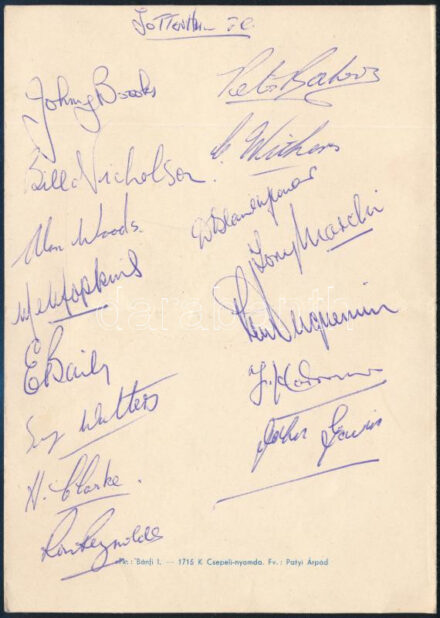 TOTTENHAM F.C.
Johnny Brooks
Bill Nicholson
Alan Woods.
Mel Hopkins
E Baily
Sid Watters
H. Clarke.
Ron Reynolds
Peter Baker
C. Withers
D Blanchflower
Tony Marchi
Len Duquemin
darabanth
: Bánfi I. — 1715 K Csepeli-nyomda. Fv.: Patyi Árpád